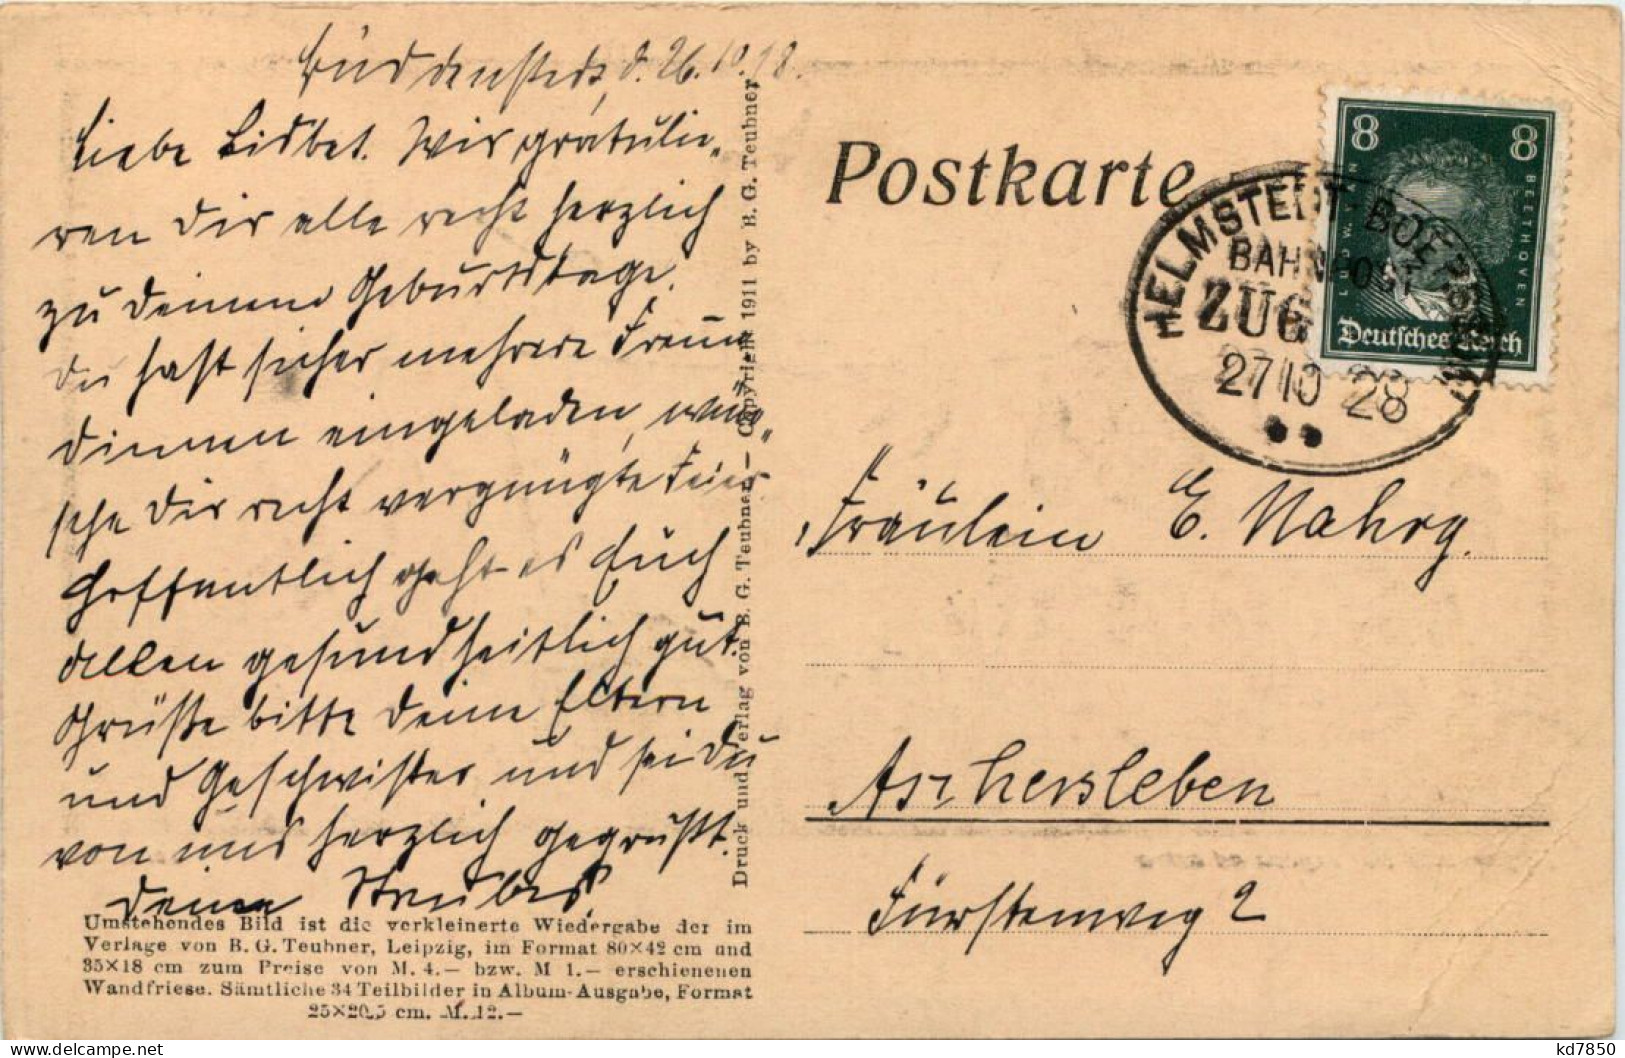 Büddenstedt, d. 26.10.28.
Liebe Lisbet. Wir gratulie-
ren Dir alle recht herzlich
zu Deinem Geburtstage.
Du hast sicher mehrere Freun-
dinnen eingeladen, wün-
sche Dir recht vergnügte Feier
Hoffentlich geht es Euch
allen gesundheitlich gut.
Grüße bitte Deine Eltern
und Geschwister und sei Du
von uns herzlich gegrüßt.
Deine
Umstehendes Bild ist die verkleinerte Wiedergabe der im
Verlage von B. G. Teubner, Leipzig, im Format 80×42 cm und
35×18 cm zum Preise von M. 4.— bzw. M 1.— erschienenen
Wandfriese. Sämtliche 34 Teilbilder in Album-Ausgabe, Format
25×20,5 cm. M. 12.—
Druck und Verlag von B. G. Teubner — Copyright 1911 by B. G. Teubner
Postkarte
8 8
LUDW. V. BEETHOVEN
Deutsches Reich
HELMSTEDT-
BAHNPOST
ZUG
27 10 28
Fräulein E. Nahrg.
Aschersleben
Fürstenweg 2
kd7850